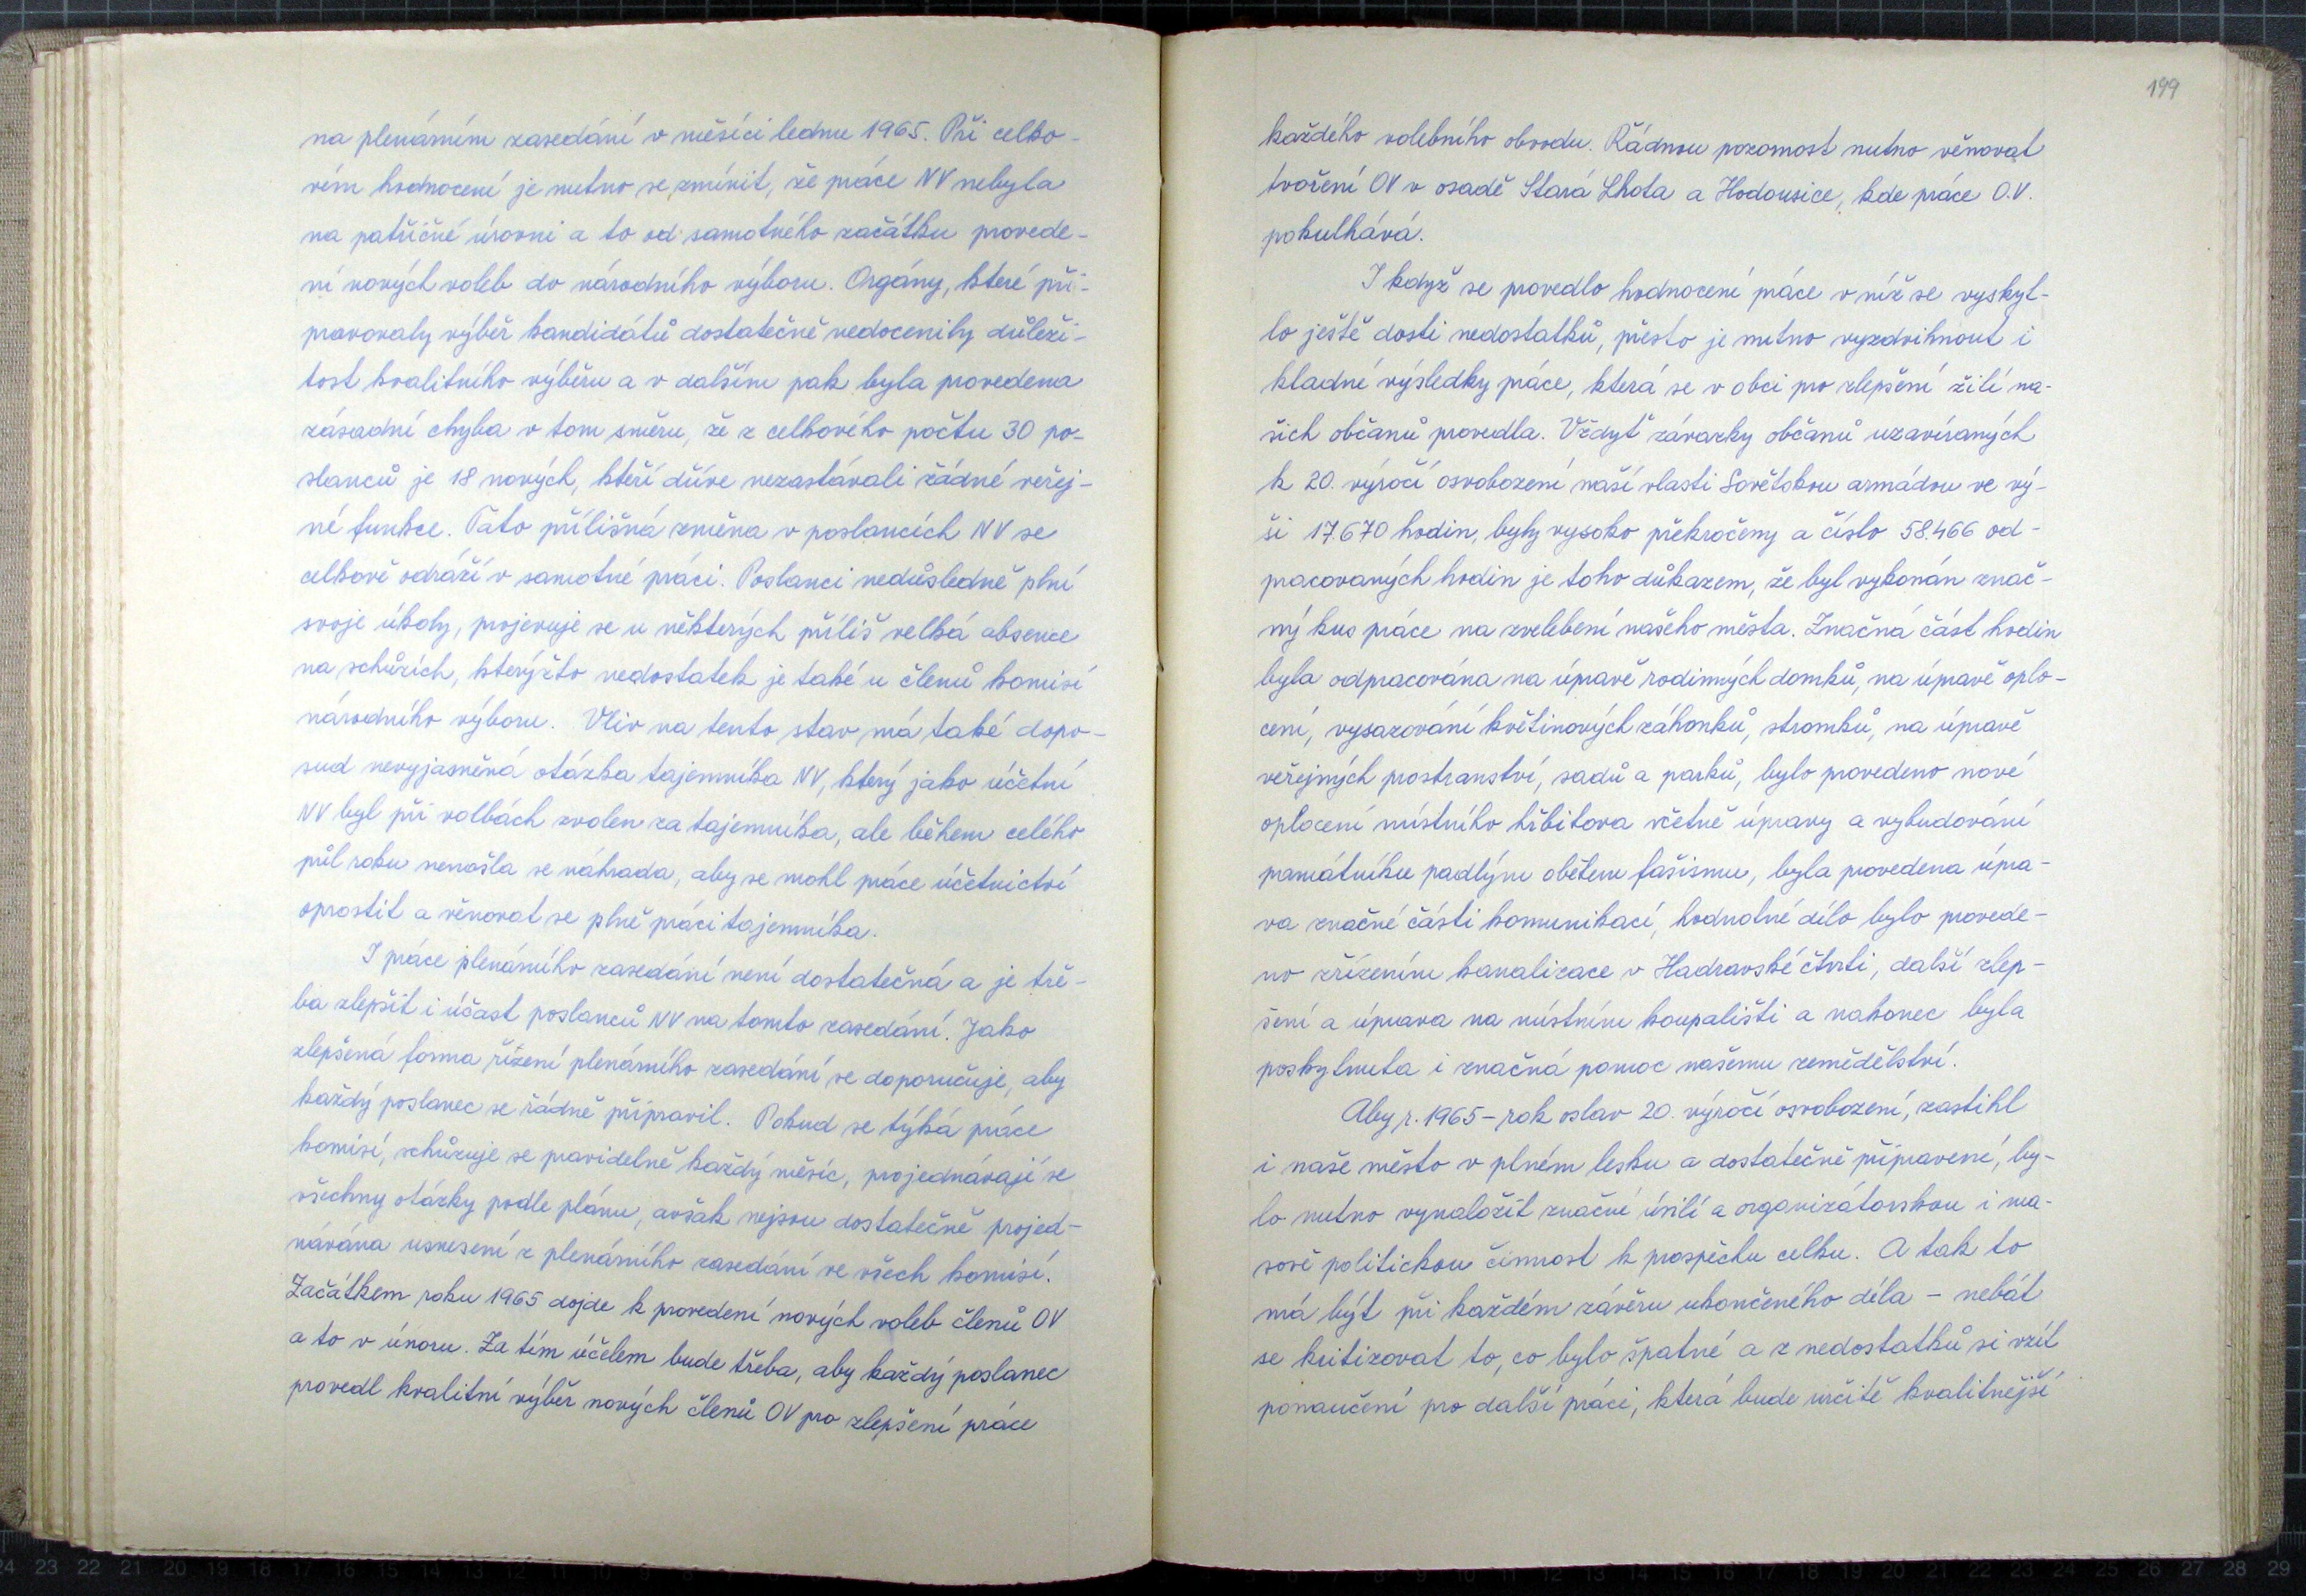 na plenárním zasedání v měsíci lednu 1965. Při celko-
vém hodnocení je nutno se zmínit, že práce NV nebyla
na patřičné úrovni a to od samotného začátku provede-
ní nových voleb do národního výboru. Orgány, které při-
pravovaly výběr kandidátů dostatečně nedocenily důleži-
tost kvalitního výběru a v dalším pak byla provedena
zásadní chyba v tom směru, že z celkového počtu 30 po-
slanců je 18 nových, kteří dříve nezastávali žádné veřej-
né funkce. Tato přílišná změna v poslancích NV se
celkově odráží v samotné práci. Poslanci nedůsledně plní
svoje úkoly, projevuje se u některých příliš velká absence
na schůzích, kterýžto nedostatek je také u členů komisí
národního výboru. Vliv na tento stav má také dopo-
sud nevyjasněná otázka tajemníka NV, který jako účetní
NV byl při volbách zvolen za tajemníka, ale během celého
půl roku nenašla se náhrada, aby se mohl práce účetnictví
oprostit a věnovat se plně práci tajemníka.
I práce plenárního zasedání není dostatečná a je tře-
ba zlepšit i účast poslanců NV na tomto zasedání. Jako
zlepšená forma řízení plenárního zasedání se doporučuje, aby
každý poslanec se řádně připravil. Pokud se týká práce
komisí, schůzuje se pravidelně každý měsíc, projednávají se
všechny otázky podle plánu, avšak nejsou dostatečně projed-
návána usnesení z plenárního zasedání ve všech komisí.
Začátkem roku 1965 dojde k provedení nových voleb členů OV
a to v únoru. Za tím účelem bude třeba, aby každý poslanec
provedl kvalitní výběr nových členů OV pro zlepšení práce
199
každého volebního obvodu. Řádnou pozornost nutno věnovat
tvoření OV v osadě Stará Lhota a Hodousice, kde práce O.V.
pokulhává.
I když se provedlo hodnocení práce v níž se vyskyt-
lo ještě dosti nedostatků, přesto je nutno vyzdvihnout i
kladné výsledky práce, která se v obci pro zlepšení žití na-
šich občanů provedla. Vždyť závazky občanů uzavíraných
k 20. výročí osvobození naší vlasti Sovětskou armádou ve vý-
ši 17.670 hodin, byly vysoko překročeny a číslo 58.466 od-
pracovaných hodin je toho důkazem, že byl vykonán znač-
ný kus práce na zvelebení našeho města. Značná část hodin
byla odpracována na úpravě rodinných domků, na úpravě oplo-
cení, vysazování květinových záhonků, stromků, na úpravě
veřejných prostranství, sadů a parků, bylo provedeno nové
oplocení místního hřbitova včetně úpravy a vybudování
památníku padlým obětem fašismu, byla provedena úpra-
va značné části komunikací, hodnotné dílo bylo provede-
no zřízením kanalizace v Hadravské čtvrti, další zlep-
šení a úprava na místním koupališti a nakonec byla
poskytnuta i značná pomoc našemu zemědělství.
Aby r. 1965 - rok oslav 20. výročí osvobození, zastihl
i naše město v plném lesku a dostatečně připravení, by-
lo nutno vynaložit značné úsilí a organizátorskou i ma-
sově politickou činnost k prospěchu celku. A tak to
má být při každém závěru ukončeného díla - nebát
se kritizovat to, co bylo špatné a z nedostatků si vzít
ponaučení pro další práci, která bude určitě kvalitnější